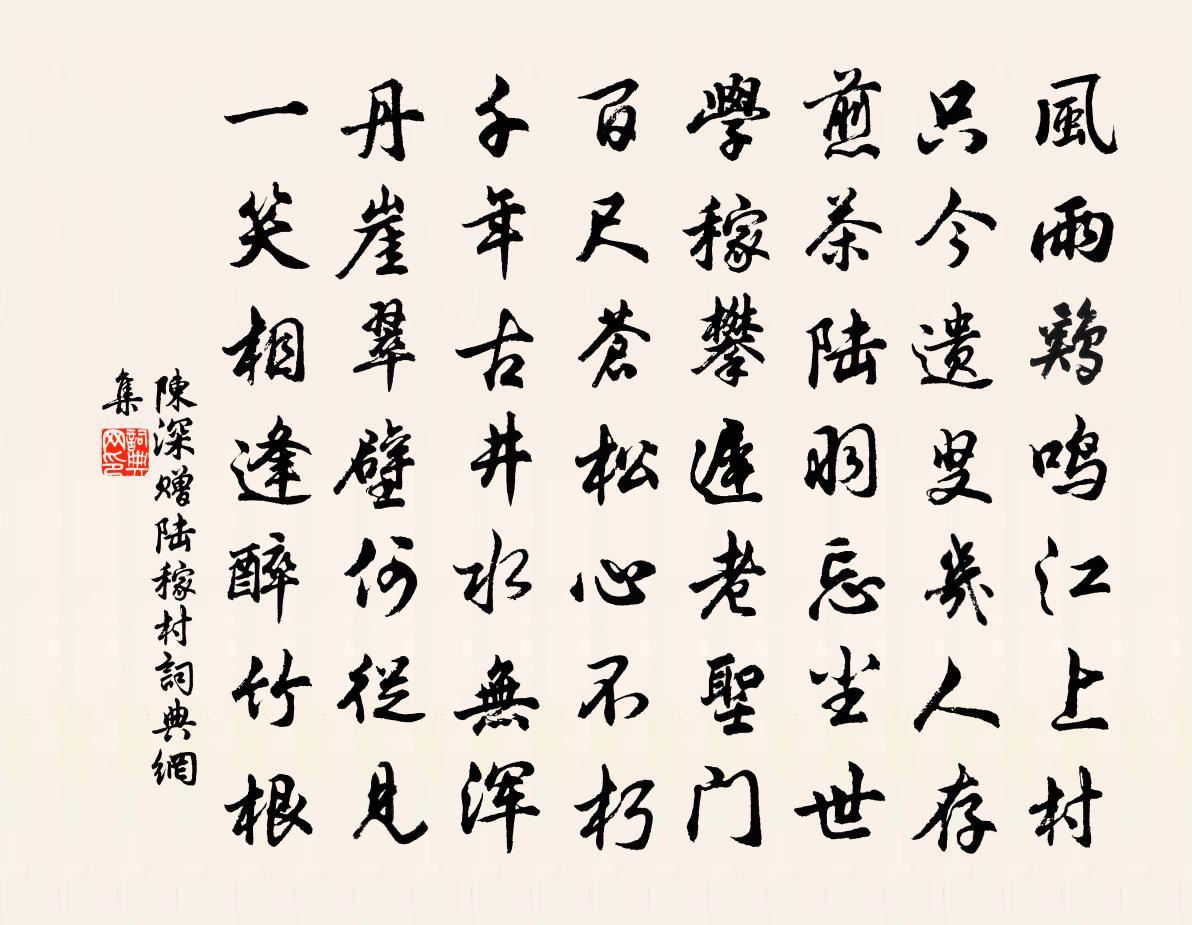 風雨鷄鳴江上村
只今遺叟幾人存
煎茶陆羽忘尘世
學稼攀遲老聖门
百尺蒼松心不朽
千年古井水無浑
丹崖翠壁何從見
一笑相逢醉竹根
陳深贈陆稼村詞典網
集
詞典
网印